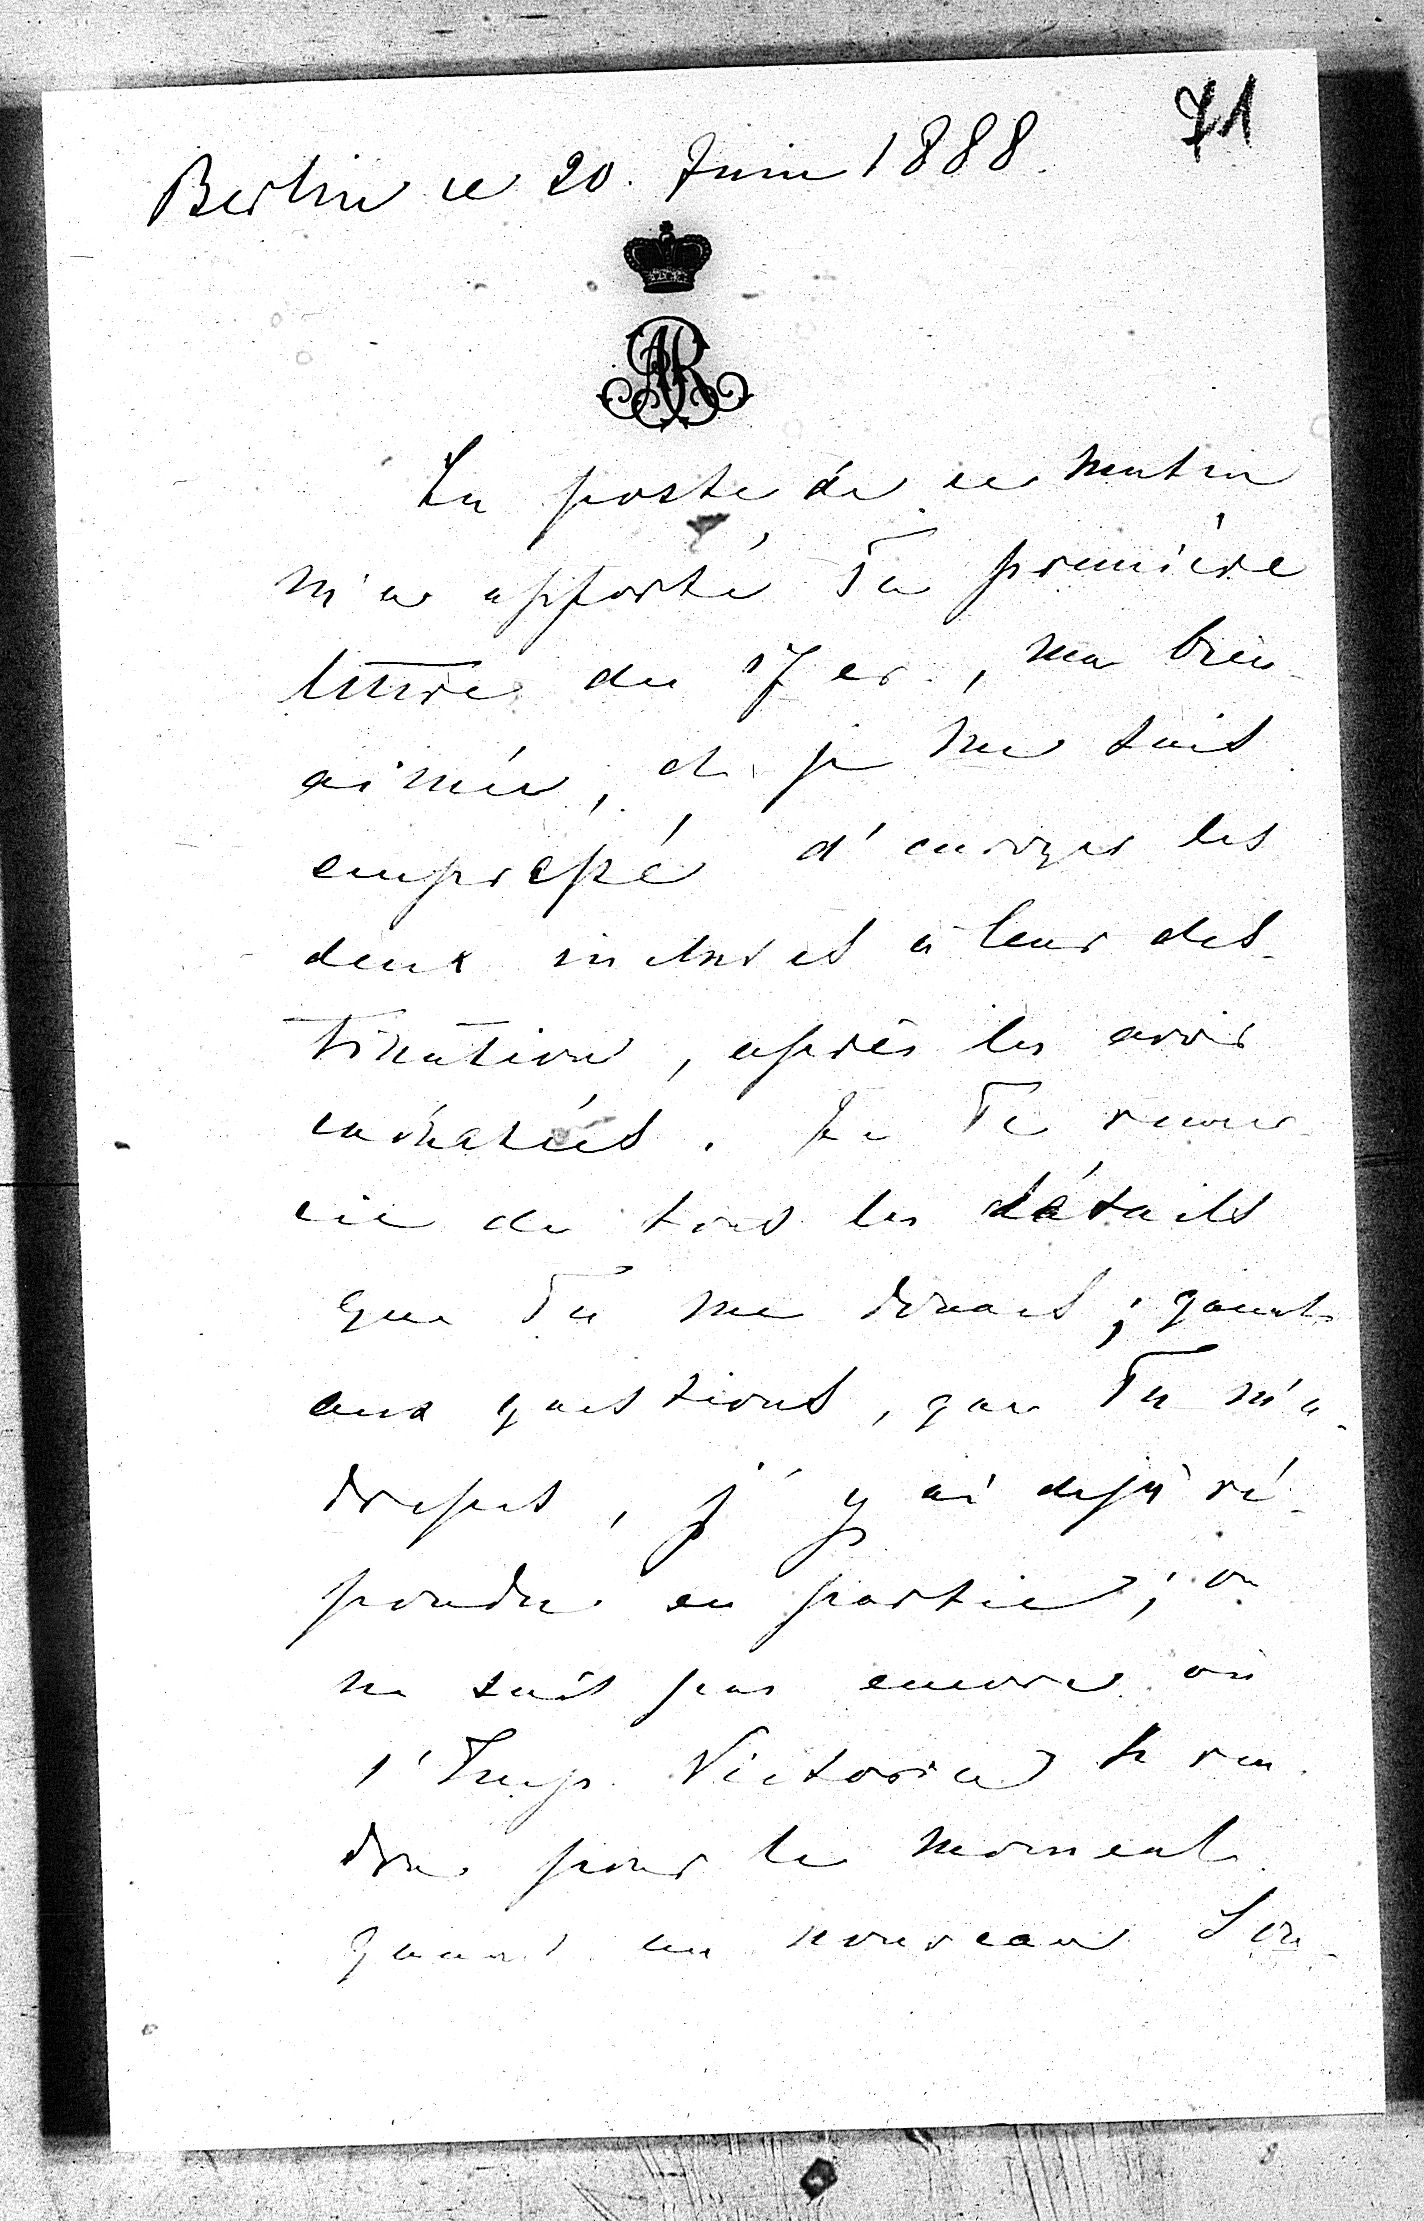 71
Berlin ce 20. Juin 1888.
AR
La poste de ce matin
m'a apporté Ta première
lettre du 17 cr., ma bien
aimée, et je me suis
empressé d'envoyer les
deux incluses à leur des-
tination, après les avoir
cachetées. Je Te remer-
cie de tous les détails
que Tu me donnes; quant
aux questions, que Tu m'a-
dresses, j'y ai dejà ré-
pondu en partie; on
ne sait pas encore où
l'Imp. Victoria se ren-
dra pour le moment
quant au nouveau Sou-